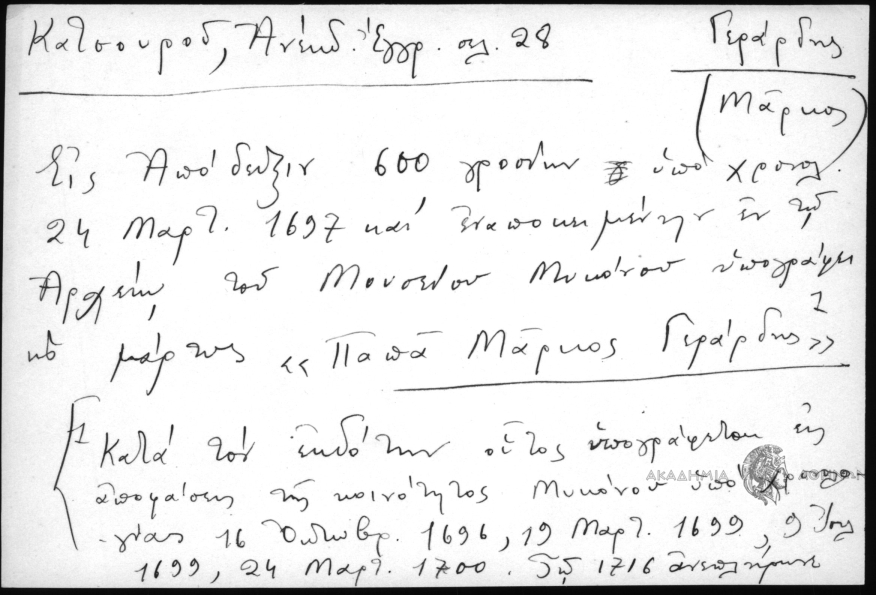 Κατσουροῦ, Ἀνέκδ. Ἔγγρ. σελ. 28
Γεράρδης
(Μᾶρκος)
Εἰς Ἀπόδειξιν 600 γροσίων ὑπὸ χρονολ.
24 Μαρτ. 1697 καὶ ἐναποκειμένην ἐν τῷ
Ἀρχείῳ τοῦ Μουσείου Μυκόνου ὑπογράφει
ὡς μάρτυς «Παπᾶ Μᾶρκος Γεράρδης»1
1 Κατὰ τὸν ἐκδότην οὗτος ὑπογράφεται εἰς
ἀποφάσεις τῆς κοινότητος Μυκόνου ὑπὸ χρονολο-
γίας 16 Ὀκτωβρ. 1696, 19 Μαρτ. 1699, 9 Ἰουλ
1699, 24 Μαρτ. 1700. Τῷ 1716 ἀνεπλήρωνε
ΑΚΑΔΗΜΙΑ